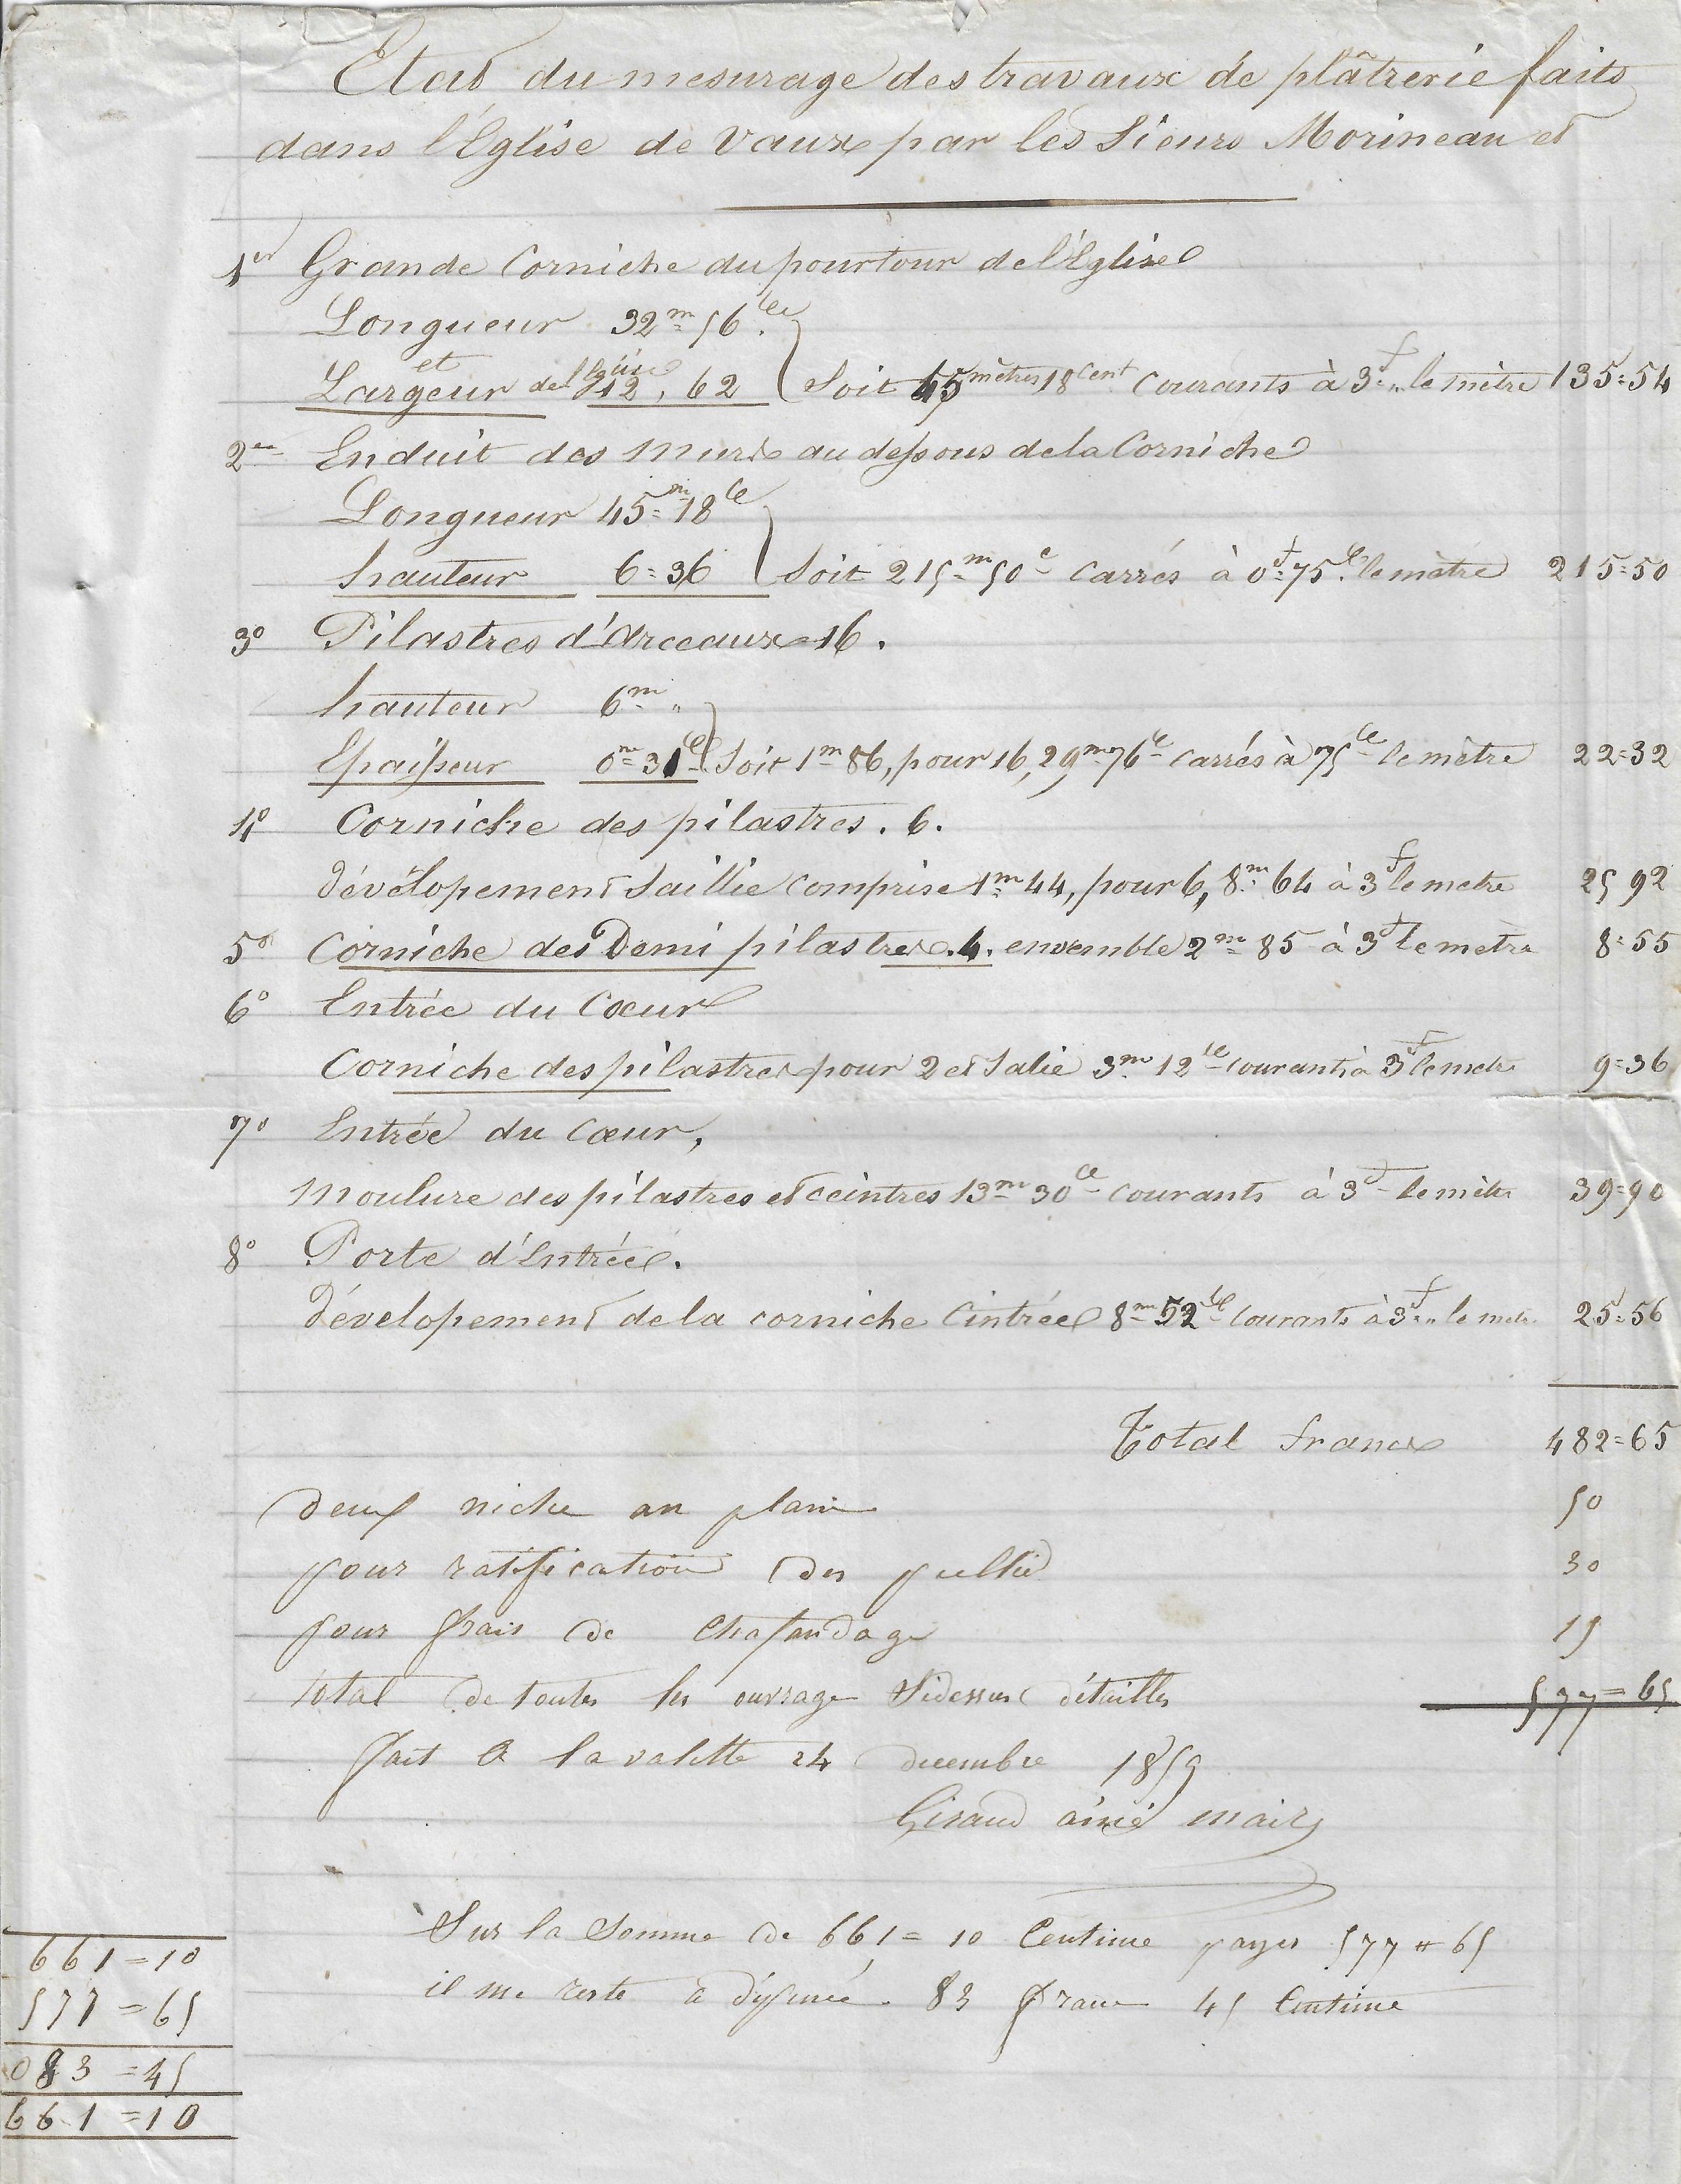 Etat du mesurage des travaux de plâtrerie faits
dans l'Eglise de Vaux par les Sieurs Morineau et
1er Grande Corniche du pourtour de l'Eglise
Longueur 32m=56ce
et
Largeur de l'Eglise 12,62 Soit 45 mètres 18 cent Courants à 3f=" le mètre 135=54
2me Enduit des Murs au dessous de la Corniche
Longueur 45=m18ce
hauteur 6=36 Soit 215=m50c Carrés à 0f=75ce le mètre 215=50
3o Pilastres d'Arceaux 16.
hauteur 6m "
Epaisseur 0m=31ce Soit 1m=86, pour 16, 29m=76ce carrés à 75ce le mètre 22=32
4o Corniche des pilastres. 6.
dévélopement Saillie comprise 1m=44, pour 6, 8m=64 à 3f le metre 25 92
5o Corniche des Demi pilastres. 4. ensemble 2m=85 à 3f le metre 8=55
6o Entrée du Coeur
Corniche des pilastres pour 2 et Salie 3m=12ce courant à 3f le metre 9=36
7o Entrée du Coeur,
Moulure des pilastres et ceintres 13m=30ce courants à 3f le mètre 39=90
8o Porte d'Entrée.
Dévelopement de la corniche Cintrée 8m=52ce Courants à 3f=" le metre 25=56
Total francs 482=65
deux niche an plain 50
pour ratification des 30
pour frais de Chafaudage 15
total de toutes les ouvrage Sidessus détailles 577=65
fait a lavalette 24 decembre 1859
Giraud ainé maire
Sur la Somme de 661=10 Centime payer 577#65
il me reste a 83 franc 45 Centime
661=10
577=65
083=45
661=10